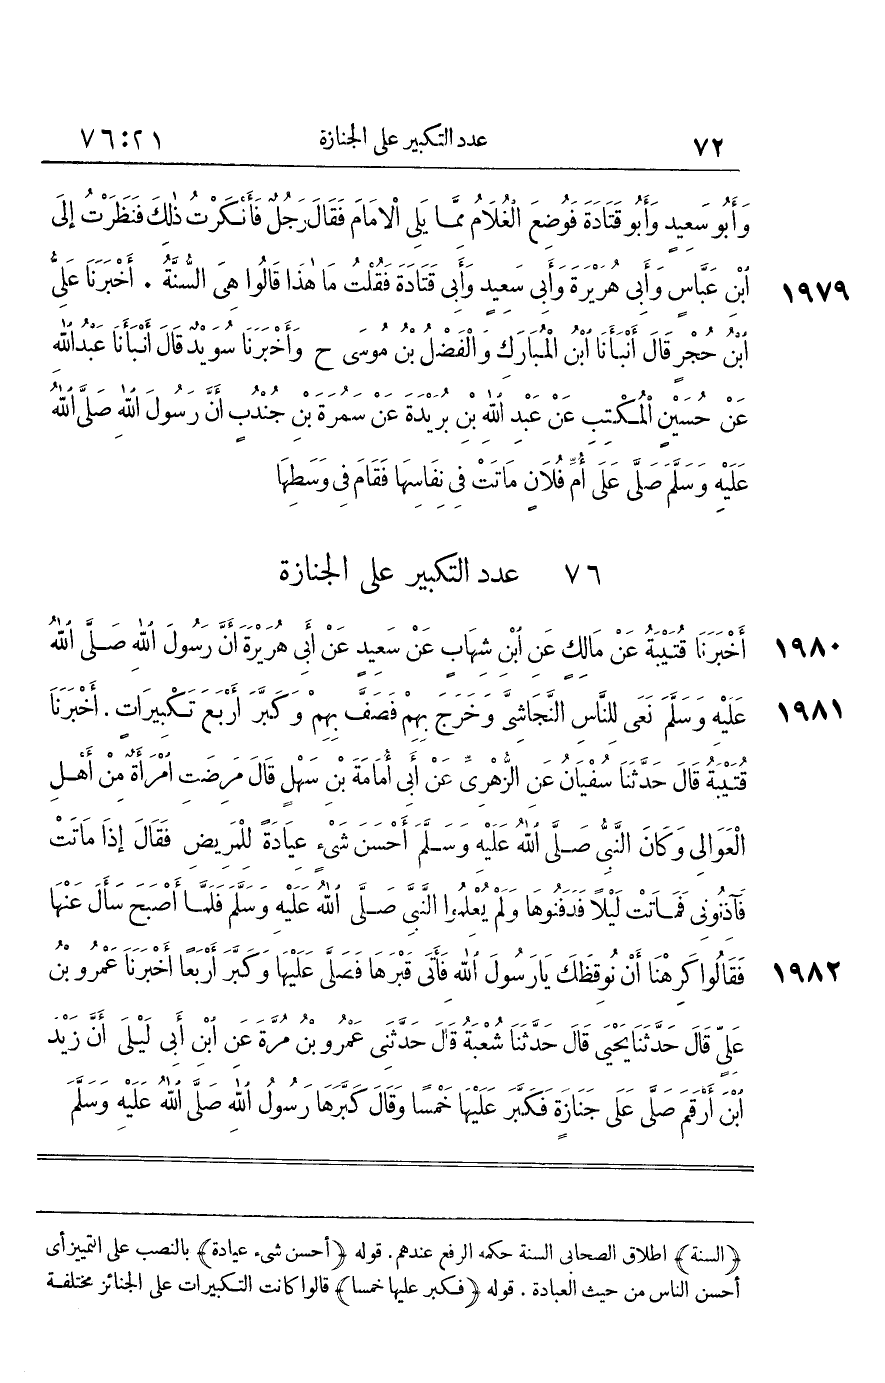 ٧٢ عدد التكبير على الجنازة ٢١ : ٧٦
وَأَبُو سَعِيدٍ وَأَبُو قَتَادَةَ فَوُضِعَ الْغُلَامُ مِمَّا يَلِى الْامَامَ فَقَالَ رَجُلٌ فَأَنْكَرْتُ ذٰلِكَ فَنَظَرْتُ إِلَى
ابْنِ عَبَّاسٍ وَأَبِى هُرَيْرَةَ وَأَبِى سَعِيدٍ وَأَبِى قَتَادَةَ فَقُلْتُ مَا هٰذَا قَالُوا هِىَ السُّنَّةُ . أَخْبَرَنَا عَلِىُّ ١٩٧٩
ابْنُ حُجْرٍ قَالَ أَنْبَأَنَا ابْنُ الْمُبَارَكِ وَالْفَضْلُ بْنُ مُوسَى ح وَأَخْبَرَنَا سُوَيْدٌ قَالَ أَنْبَأَنَا عَبْدُ اللّٰهِ
عَنْ حُسَيْنٍ الْمُكْتِبِ عَنْ عَبْدِ اللّٰهِ بْنِ بُرَيْدَةَ عَنْ سَمُرَةَ بْنِ جُنْدُبٍ أَنَّ رَسُولَ اللّٰهِ صَلَّى اللّٰهُ
عَلَيْهِ وَسَلَّمَ صَلَّى عَلَى أُمِّ فُلَانٍ مَاتَتْ فِى نِفَاسِهَا فَقَامَ فِى وَسَطِهَا
٧٦ عدد التكبير على الجنازة
أَخْبَرَنَا قُتَيْبَةُ عَنْ مَالِكٍ عَنِ ابْنِ شِهَابٍ عَنْ سَعِيدٍ عَنْ أَبِى هُرَيْرَةَ أَنَّ رَسُولَ اللّٰهِ صَلَّى اللّٰهُ ١٩٨٠
عَلَيْهِ وَسَلَّمَ نَعَى لِلنَّاسِ النَّجَاشِىَّ وَخَرَجَ بِهِمْ فَصَفَّ بِهِمْ وَكَبَّرَ أَرْبَعَ تَكْبِيرَاتٍ . أَخْبَرَنَا ١٩٨١
قُتَيْبَةُ قَالَ حَدَّثَنَا سُفْيَانُ عَنِ الزُّهْرِىِّ عَنْ أَبِى أُمَامَةَ بْنِ سَهْلٍ قَالَ مَرِضَتِ امْرَأَةٌ مِنْ أَهْلِ
الْعَوَالِى وَكَانَ النَّبِىُّ صَلَّى اللّٰهُ عَلَيْهِ وَسَلَّمَ أَحْسَنَ شَىْءٍ عِيَادَةً لِلْمَرِيضِ فَقَالَ إِذَا مَاتَتْ
فَآذِنُونِى فَمَاتَتْ لَيْلًا فَدَفَنُوهَا وَلَمْ يُعْلِمُوا النَّبِىَّ صَلَّى اللّٰهُ عَلَيْهِ وَسَلَّمَ فَلَمَّا أَصْبَحَ سَأَلَ عَنْهَا
فَقَالُوا كَرِهْنَا أَنْ نُوقِظَكَ يَارَسُولَ اللّٰهِ فَأَتَى قَبْرَهَا فَصَلَّى عَلَيْهَا وَكَبَّرَ أَرْبَعًا أَخْبَرَنَا عَمْرُو بْنُ ١٩٨٢
عَلِىٍّ قَالَ حَدَّثَنَا يَحْيَى قَالَ حَدَّثَنَا شُعْبَةُ قَالَ حَدَّثَنِى عَمْرُو بْنُ مُرَّةَ عَنِ ابْنِ أَبِى لَيْلَى أَنَّ زَيْدَ
ابْنَ أَرْقَمَ صَلَّى عَلَى جَنَازَةٍ فَكَبَّرَ عَلَيْهَا خَمْسًا وَقَالَ كَبَّرَهَا رَسُولُ اللّٰهِ صَلَّى اللّٰهُ عَلَيْهِ وَسَلَّمَ
﴿السنة﴾ اطلاق الصحابى السنة حكمه الرفع عندهم. قوله ﴿أحسن شىء عيادة﴾ بالنصب على التمييز أى
أحسن الناس من حيث العبادة . قوله ﴿فكبر عليها خمسا﴾ قالوا كانت التكبيرات على الجنائز مختلفة